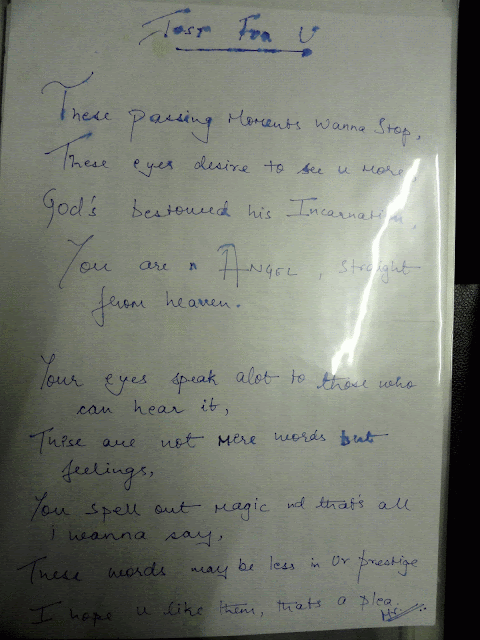 Just For U
These passing Moments Wanna Stop,
These eyes desire to see u more,
God's bestowed his Incarnation,
You are n ANGEL, straight
from heaven.
Your eyes speak alot to those who
can hear it,
These are not mere words but
feelings,
You spell out magic nd that's all
i wanna say,
These words may be less in Ur prestige
I hope u like them, thats a plea.